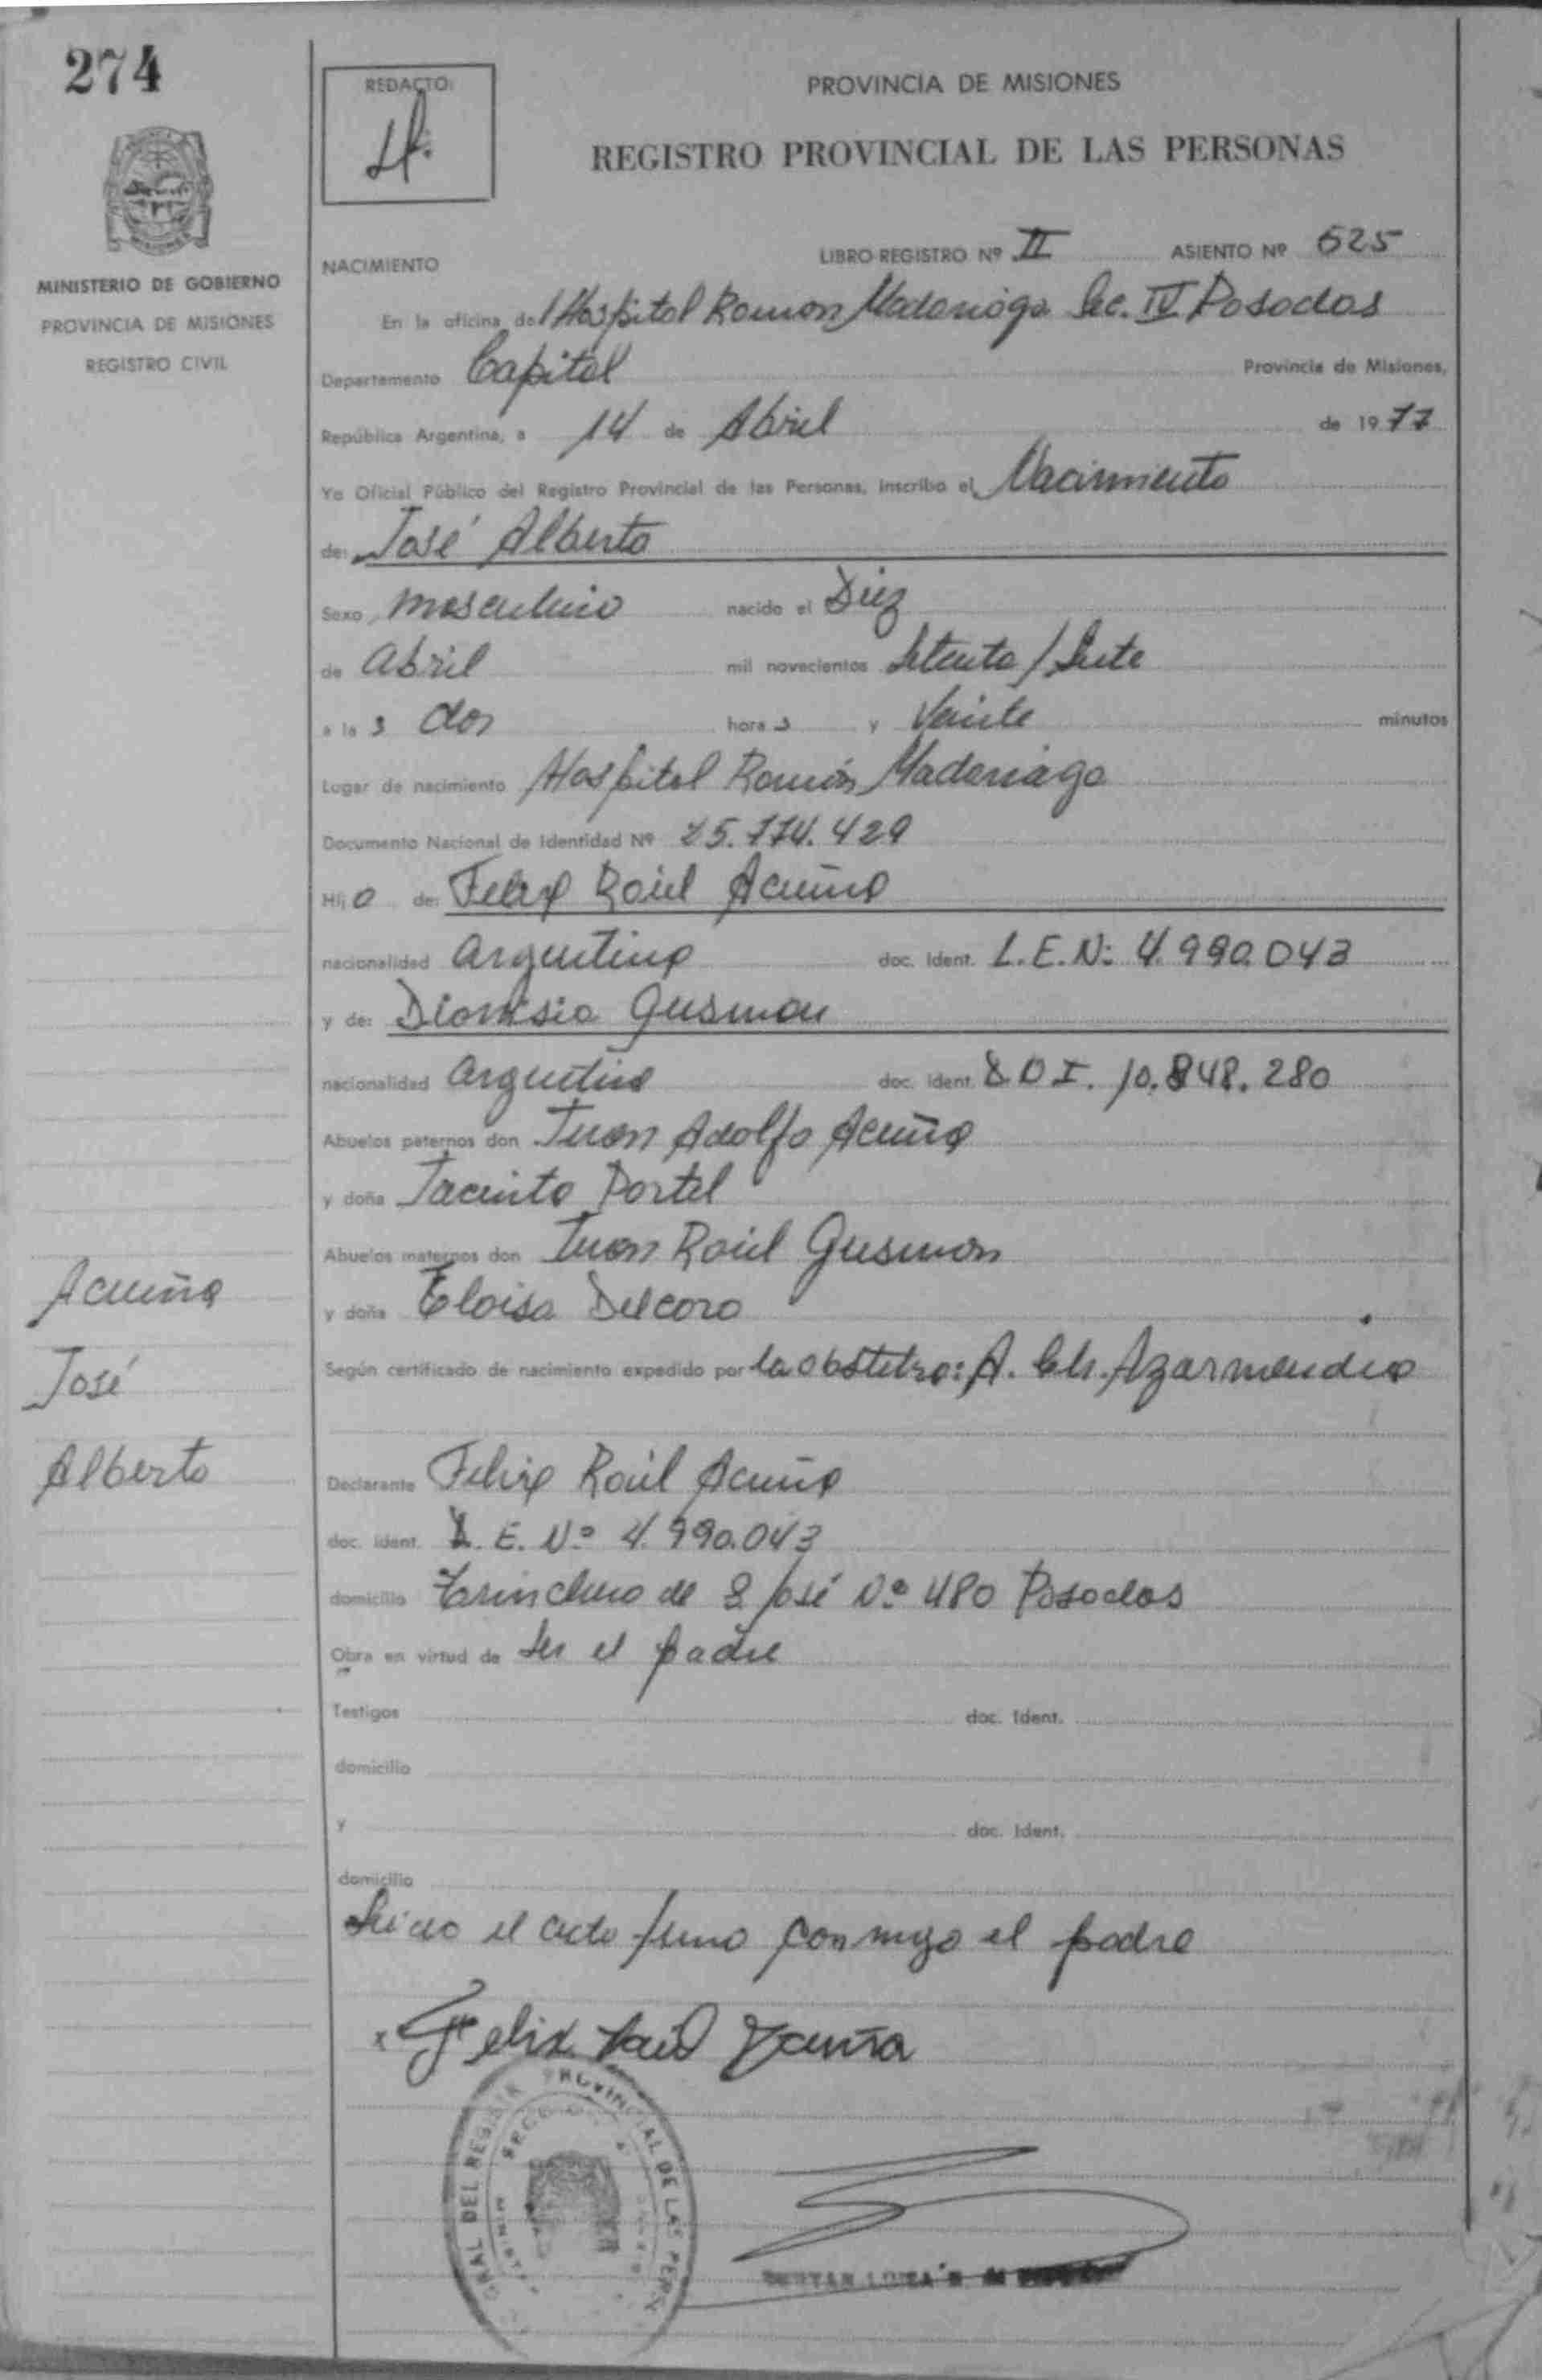 274
REDACTO:
PROVINCIA DE MISIONES
REGISTRO PROVINCIAL DE LAS PERSONAS
MINISTERIO DE GOBIERNO
PROVINCIA DE MISIONES
REGISTRO CIVIL
LIBRO REGISTRO Nº II ASIENTO Nº 525
NACIMIENTO
En la oficina del Hospital Ramon Madariaga Sec. IV Posadas
Departamento Capital Provincia de Misiones,
República Argentina, a 14 de Abril de 1977
Yo Oficial Público del Registro Provincial de las Personas, inscribo el Nacimiento
de: José Alberto
Sexo masculino nacido el Diez
de Abril mil novecientos Setenta / Siete
a las dos horas y Veinte minutos
Lugar de nacimiento Hospital Ramón Madariaga
Documento Nacional de Identidad Nº 25.774.429
Hijo de: Felix Raúl Acuña
nacionalidad argentina doc. Ident. L.E.N: 4.990.043
y de: Dionisia Gusman
nacionalidad argentina doc. Ident. 10.848.280
Abuelos paternos don Juan Adolfo Acuña
y doña Jacinta Portel
Abuelos maternos don Juan Raúl Gusman
y doña Eloisa Delcoro
Según certificado de nacimiento expedido por la obstetra: A. Ch. Azarmendia
Acuña
José
Alberto
Declarante Felix Raúl Acuña
doc. Ident. L.E. Nº 4.990.043
domicilio Trinchera de S José Nº 480 Posadas
Obra en virtud de ser el padre
Testigos doc. Ident.
domicilio
y doc. Ident.
domicilio
el acto firma conmigo el padre
x Felix Raul Acuña
GRAL DEL REGISTR PROVINCIAL DE LAS PERS